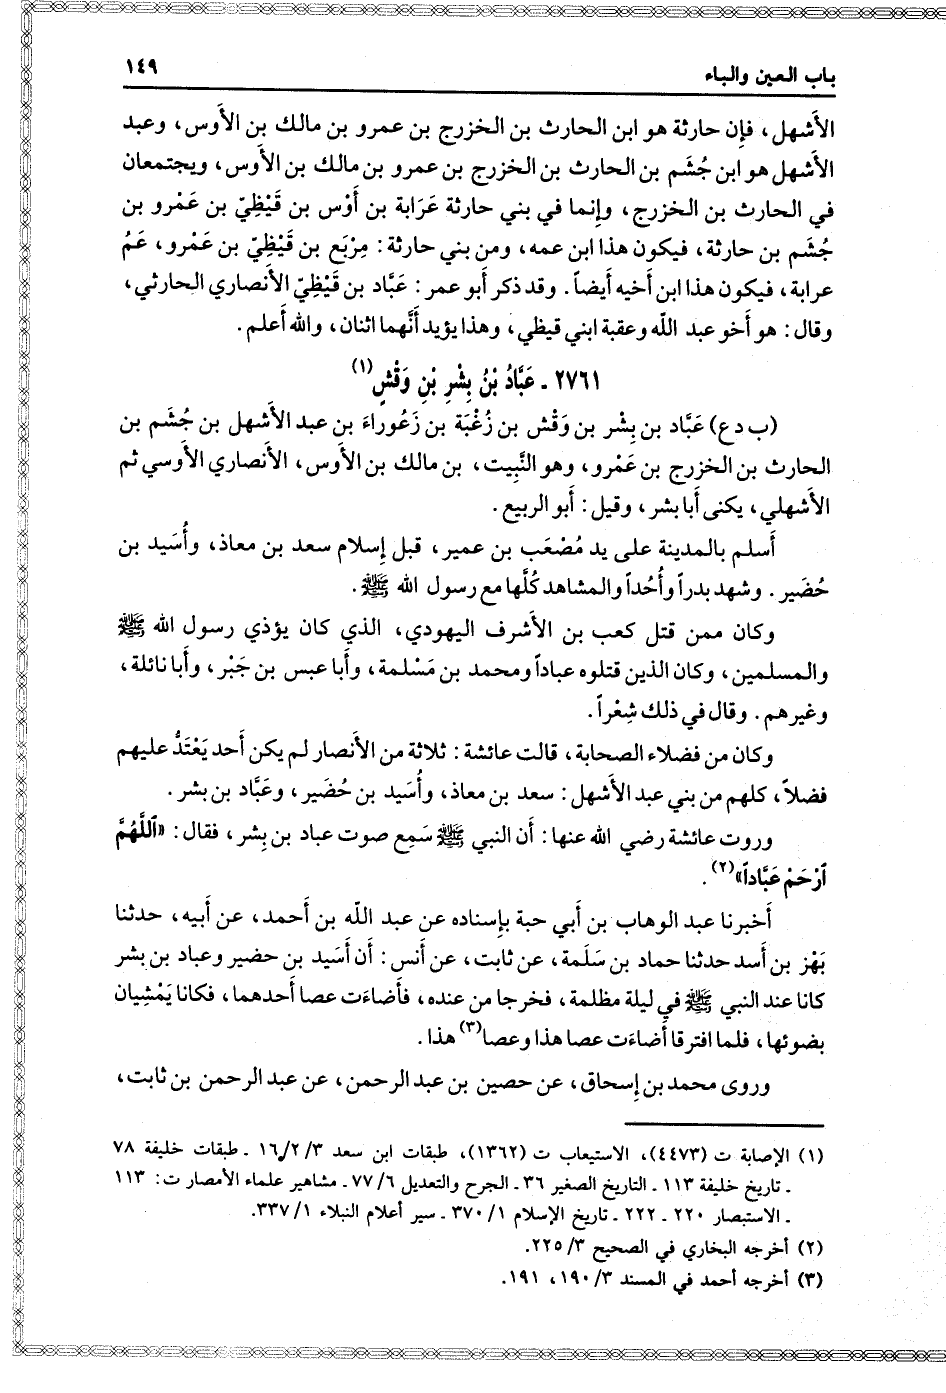 باب العين والباء ١٤٩
الأَشهل، فإِن حارثة هو ابن الحارث بن الخزرج بن عمرو بن مالك بن الأَوس، وعبد
الأَشهل هو ابن جُشَم بن الحارث بن الخزرج بن عمرو بن مالك بن الأَوس، ويجتمعان
في الحارث بن الخزرج، وإِنما في بني حارثة عَرَابة بن أَوْس بن قَيْظِيّ بن عَمْرو بن
جُشَم بن حارثة، فيكون هذا ابن عمه، ومن بني حارثة: مِرْبَع بن قَيْظِيّ بن عَمْرو، عَمُ
عرابة، فيكون هذا ابن أَخيه أَيضاً. وقد ذكر أَبو عمر: عَبَّاد بن قَيْظِيّ الأَنصاري الحارثي،
وقال: هو أَخو عبد اللّه وعقبة ابني قيظي، وهذا يؤيد أَنَّهما اثنان، والله أَعلم.
٢٧٦١ ـ عَبَّادُ بْنُ بِشْرِ بْنِ وَقْشٍ(١)
(ب د ع) عَبَّاد بن بِشْر بن وَقْش بن زُغْبَة بن زَعُوراءَ بن عبد الأَشهل بن جُشَم بن
الحارث بن الخزرج بن عَمْرو، وهو النَّبِيت، بن مالك بن الأَوس، الأَنصاري الأَوسي ثم
الأَشهلي، يكنى أَبا بشر، وقيل: أَبو الربيع.
أَسلم بالمدينة على يد مُصْعَب بن عمير، قبل إِسلام سعد بن معاذ، وأُسَيد بن
حُضَير. وشهد بدراً وأُحُداً والمشاهد كُلَّها مع رسول الله ﷺ.
وكان ممن قتل كعب بن الأَشرف اليهودي، الذي كان يؤذي رسول الله ﷺ
والمسلمين، وكان الذين قتلوه عباداً ومحمد بن مَسْلمة، وأَبا عبس بن جَبْر، وأَبا نائلة،
وغيرهم. وقال في ذلك شِعْراً.
وكان من فضلاء الصحابة، قالت عائشة: ثلاثة من الأَنصار لم يكن أَحد يَعْتَدُّ عليهم
فضلاً، كلهم من بني عبد الأَشهل: سعد بن معاذ، وأُسَيد بن حُضَير، وعَبَّاد بن بشر.
وروت عائشة رضي الله عنها: أَن النبي ﷺ سَمِع صوت عباد بن بِشر، فقال: «اَللَّهُمَّ
اَرْحَمْ عَبَّاداً»(٢).
أَخبرنا عبد الوهاب بن أَبي حبة بإِسناده عن عبد اللّه بن أَحمد، عن أَبيه، حدثنا
بَهْز بن أَسد حدثنا حماد بن سَلَمة، عن ثابت، عن أَنس: أَن أُسَيد بن حضير وعباد بن بشر
كانا عند النبي ﷺ في ليلة مظلمة، فخرجا من عنده، فأَضاءَت عصا أَحدهما، فكانا يَمْشِيان
بضوئها، فلما افترقا أَضاءَت عصا هذا وعصا(٣) هذا.
وروى محمد بن إِسحاق، عن حصين بن عبد الرحمن، عن عبد الرحمن بن ثابت،
(١) الإصابة ت (٤٤٧٣)، الاستيعاب ت (١٣٦٢)، طبقات ابن سعد ١٦/٢/٣ ـ طبقات خليفة ٧٨
ـ تاريخ خليفة ١١٣ ـ التاريخ الصغير ٣٦ ـ الجرح والتعديل ٧٧/٦ ـ مشاهير علماء الأمصار ت: ١١٣
ـ الاستبصار ٢٢٠ ـ ٢٢٢ ـ تاريخ الإسلام ٣٧٠/١ ـ سير أعلام النبلاء ٣٣٧/١.
(٢) أخرجه البخاري في الصحيح ٢٢٥/٣.
(٣) أخرجه أحمد في المسند ١٩٠/٣، ١٩١.